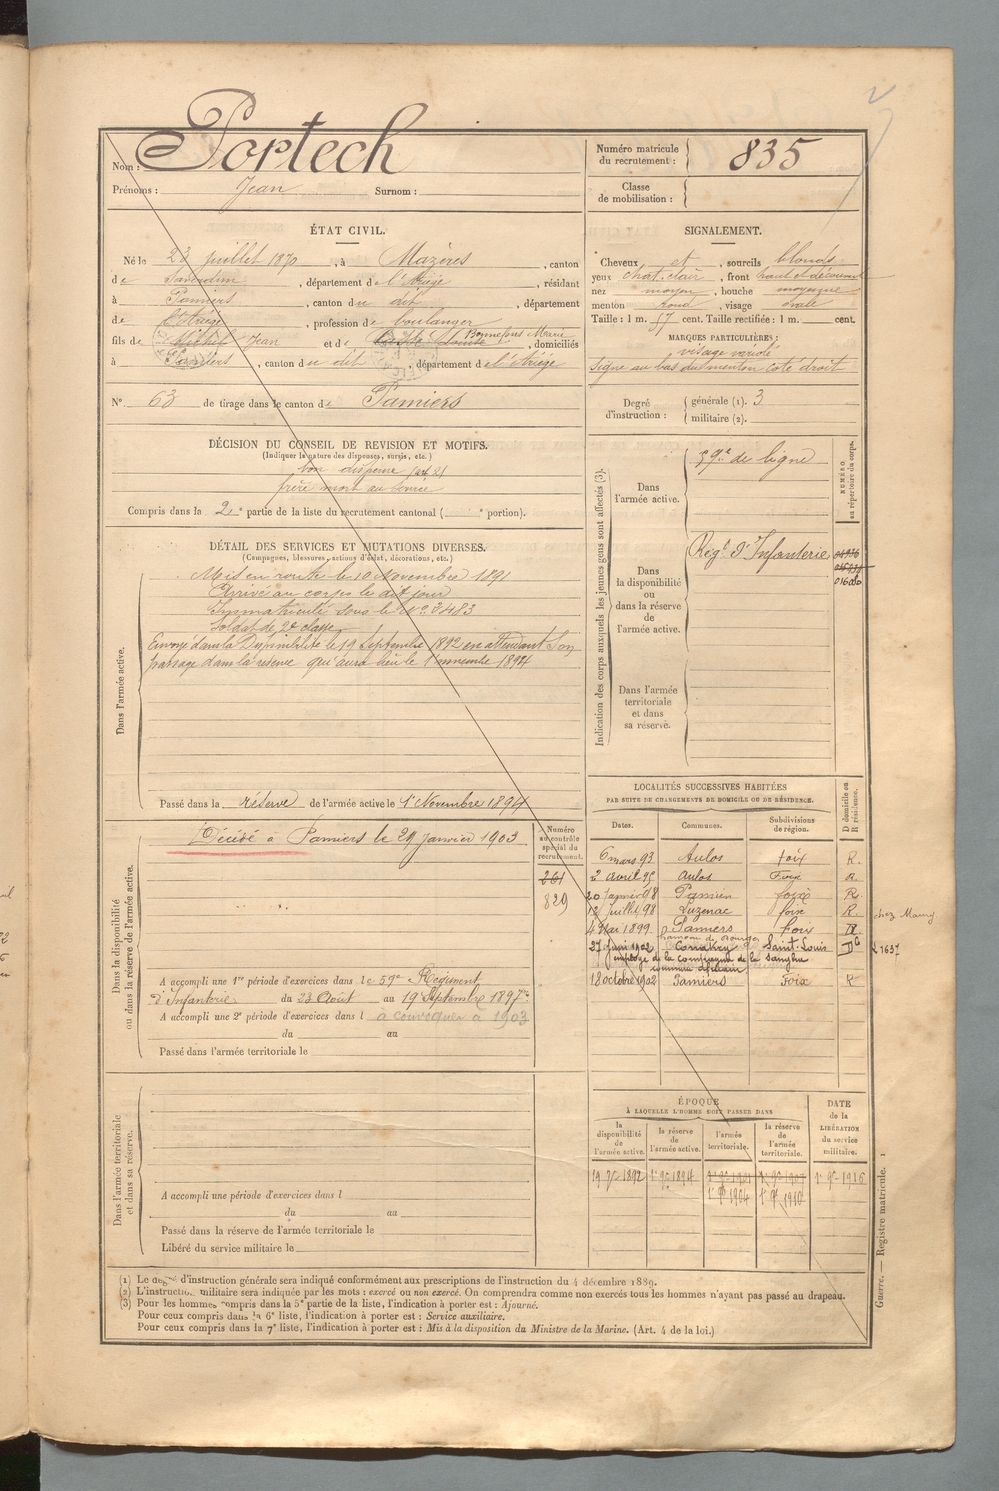 Nom : Portech
Prénoms : Jean Surnom :
Numéro matricule du recrutement : 835
Classe de mobilisation :
ÉTAT CIVIL.
Né le 23 juillet 1870, à Mazères, canton
de Saverdun, département de l'Ariège, résidant
à Pamiers, canton du dit, département
de l'Ariège, profession de boulanger
fils de Michel Jean et de Bonnefous Marie, domiciliés
à Pamiers, canton du dit, département de l'Ariège
N° 63 de tirage dans le canton de Pamiers
SIGNALEMENT.
Cheveux et, sourcils blonds
yeux chat. clair, front haut et découvert
nez moyen, bouche moyenne
menton rond, visage ovale
Taille : 1 m. 57 cent. Taille rectifiée : 1 m. cent.
MARQUES PARTICULIÈRES :
visage variolé
signe au bas du menton coté droit
Degré d'instruction : générale (1). 3
militaire (2).
DÉCISION DU CONSEIL DE REVISION ET MOTIFS.
(Indiquer la nature des dispenses, sursis, etc.)
bon dispensé (art. 21
frère mort au
Compris dans la 2e partie de la liste du recrutement cantonal ( e portion).
DÉTAIL DES SERVICES ET MUTATIONS DIVERSES.
(Campagnes, blessures, actions d'éclat, décorations, etc.)
Dans l'armée active.
Mis en route le 10 Novembre 1891
Arrivé au corps le dit jour
Immatriculé sous le N° 3483
Soldat de 2e classe
Envoyé dans la Disponibilité le 19 Septembre 1892 en attendant son
passage dans la réserve qui aura lieu le 1er novembre 1894
Passé dans la réserve de l'armée active le 1er Novembre 1894
Indication des corps auxquels les jeunes gens sont affectés (3).
NUMÉRO au répertoire du corps.
Dans l'armée active.
59e de ligne
Dans la disponibilité ou dans la réserve de l'armée active.
Régt d'Infanterie
Dans l'armée territoriale et dans sa réserve.
Dans la disponibilité ou dans la réserve de l'armée active.
Décédé à Pamiers le 29 Janvier 1903
Numéro au contrôle spécial du recrutement.
261
829
A accompli une 1re période d'exercices dans le 59e Régiment
d'Infanterie du 23 Août au 19 Septembre 1897
A accompli une 2e période d'exercices dans l à convoquer à 1903
du au
Passé dans l'armée territoriale le
LOCALITÉS SUCCESSIVES HABITÉES
PAR SUITE DE CHANGEMENTS DE DOMICILE OU DE RÉSIDENCE.
Dates. Communes. Subdivisions de région. D domicile ou R résidence.
6 mars 93 Aulos Foix R.
2 avril 95 Aulos Foix R.
20 Janvier 98 Pamiers foix R
12 juillet 98 Luzenac foix R. chez Mamy
4 Mai 1899 Pamiers foix
27 Juin 1902 Conakry Saint-Louis 1637
employé de la compagnie de la Sangha
18 octobre 1902 Pamiers Foix R
Dans l'armée territoriale et dans sa réserve.
A accompli une période d'exercices dans l
du au
Passé dans la réserve de l'armée territoriale le
Libéré du service militaire le
ÉPOQUE
À LAQUELLE L'HOMME DOIT PASSER DANS
la disponibilité de l'armée active. la réserve de l'armée active. l'armée territoriale. la réserve de l'armée territoriale. DATE de la LIBÉRATION du service militaire.
19 7bre 1892 1er 9bre 1894 1er 9bre 1901 1er 9bre 1907 1er 9bre 1916
1er 9bre 1904 1er 9bre 1910
Guerre. — Registre matricule. 1
(1) Le degré d'instruction générale sera indiqué conformément aux prescriptions de l'instruction du 4 décembre 1889.
(2) L'instruction militaire sera indiquée par les mots : exercé ou non exercé. On comprendra comme non exercés tous les hommes n'ayant pas passé au drapeau.
(3) Pour les hommes compris dans la 5e partie de la liste, l'indication à porter est : Ajourné.
Pour ceux compris dans la 6e liste, l'indication à porter est : Service auxiliaire.
Pour ceux compris dans la 7e liste, l'indication à porter est : Mis à la disposition du Ministre de la Marine. (Art. 4 de la loi.)